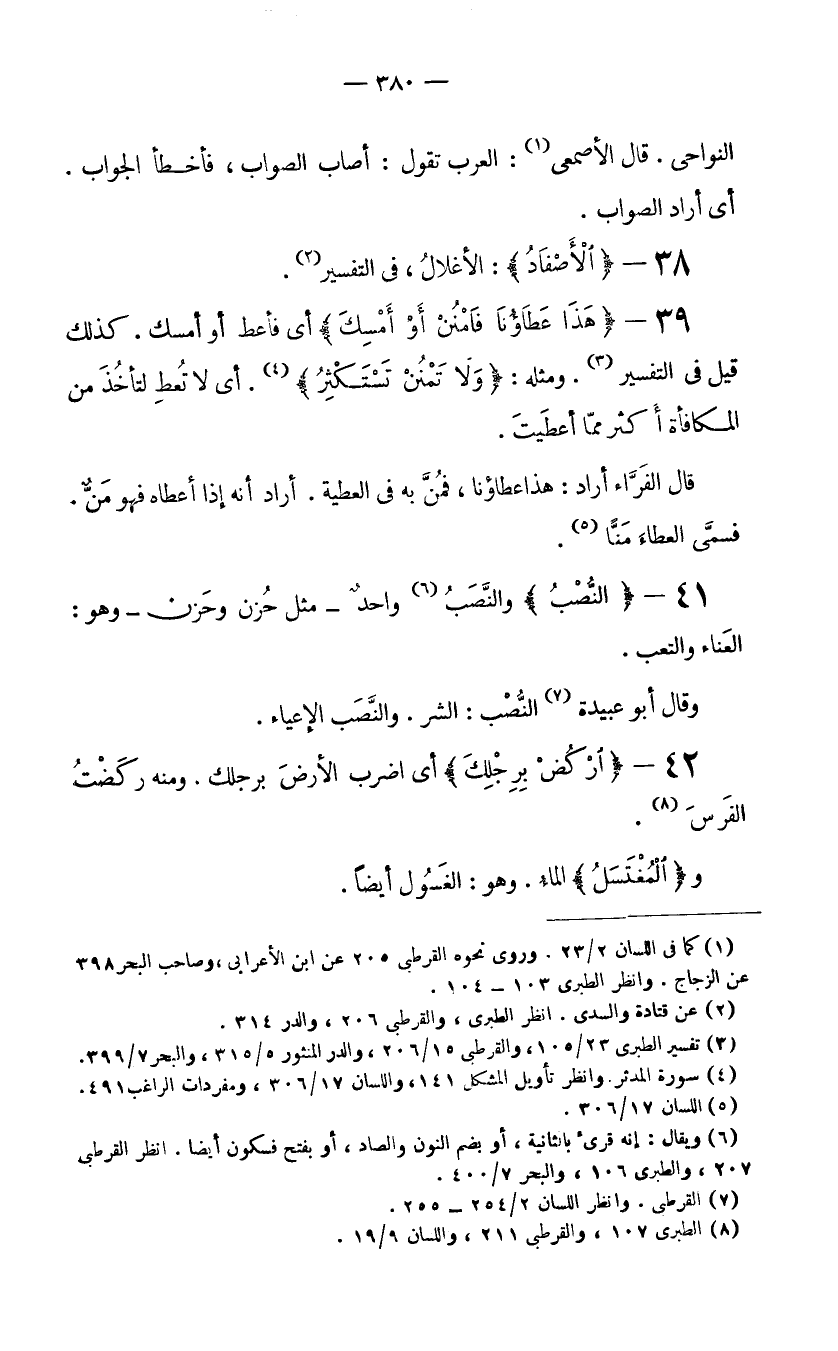 — ٣٨٠ —
النواحى . قال الأصمعى (١) : العرب تقول : أصاب الصواب ، فأخطأ الجواب .
أى أراد الصواب .
٣٨ – ﴿ ٱلْأَصْفَادُ ﴾ : الأغلالُ ، فى التفسير (٢) .
٣٩ – ﴿ هَذَا عَطَاؤُنَا فَامْنُنْ أَوْ أَمْسِكَ ﴾ أى فأعط أو أمسك . كذلك
قيل فى التفسير (٣) . ومثله : ﴿ وَلَا تَمْنُنْ تَسْتَكْثِرُ ﴾ (٤) . أى لا تُعطِ لتأخُذَ من
المكافأة أَكثر ممّا أعطَيتَ .
قال الفَرَّاء أراد : هذا عطاؤنا ، فمُنَّ به فى العطية . أراد أنه إذا أعطاه فهو مَنٌّ .
فسمَّى العطاءَ مَنًّا (٥) .
٤١ – ﴿ النُّصْبُ ﴾ والنَّصَبُ (٦) واحدٌ – مثل حُزن وحَزن – وهو :
العَناء والتعب .
وقال أبو عبيدة (٧) النُّصْب : الشر . والنَّصَب الإعياء .
٤٢ – ﴿ ٱرْكُضْ بِرِجْلِكَ ﴾ أى اضرب الأرضَ برجلك . ومنه ركَضْتُ
الفَرسَ (٨) .
و ﴿ ٱلْمُغْتَسَلُ ﴾ الماء . وهو : الغَسُول أيضاً .
(١) كما فى اللسان ٢٣/٢ . وروى نحوه القرطى ٢٠٥ عن ابن الأعرابى ، وصاحب البحر ٣٩٨
عن الزجاج . وانظر الطبرى ١٠٣ – ١٠٤ .
(٢) عن قتادة والسدى . انظر الطبرى ، والقرطى ٢٠٦ ، والدر ٣١٤ .
(٣) تفسير الطبرى ١٠٥/٢٣ ، والقرطى ٢٠٦/١٥ ، والدر المنثور ٣١٥/٥ ، والبحر ٣٩٩/٧ .
(٤) سورة المدثر . وانظر تأويل المشكل ١٤١ ، واللسان ٣٠٦/١٧ ، ومفردات الراغب ٤٩١ .
(٥) اللسان ٣٠٦/١٧ .
(٦) ويقال : إنه قرىء بالثانية ، أو بضم النون والصاد ، أو بفتح فسكون أيضا . انظر القرطى
٢٠٧ ، والطبرى ١٠٦ ، والبحر ٤٠٠/٧ .
(٧) القرطى . وانظر اللسان ٢٥٤/٢ – ٢٥٥ .
(٨) الطبرى ١٠٧ ، والقرطى ٢١١ ، واللسان ١٩/٩ .